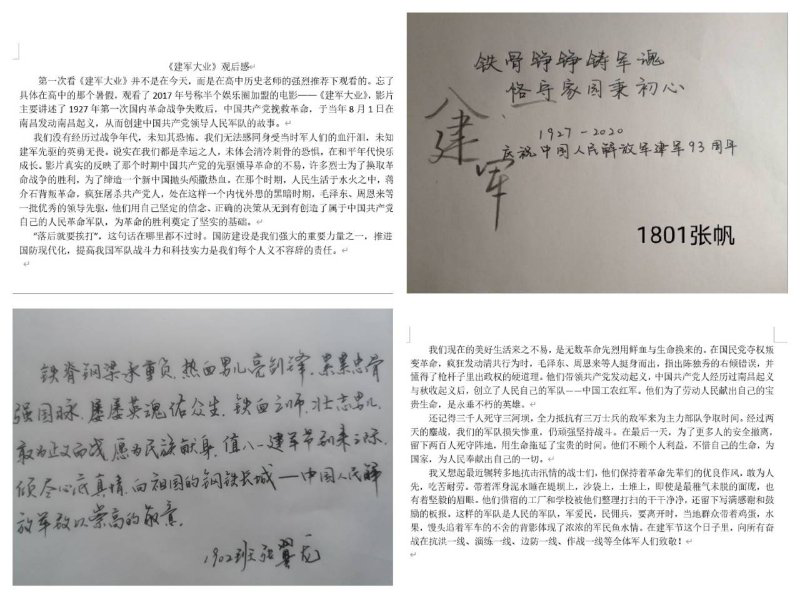 《建军大业》观后感
第一次看《建军大业》并不是在今天，而是在高中历史老师的强烈推荐下观看的。忘了
具体在高中的那个暑假，观看了 2017 年号称半个娱乐圈加盟的电影——《建军大业》，影片
主要讲述了 1927 年第一次国内革命战争失败后，中国共产党挽救革命，于当年 8 月 1 日在
南昌发动南昌起义，从而创建中国共产党领导人民军队的故事。
我们没有经历过战争年代，未知其恐怖。我们无法感同身受当时军人们的血汗泪，未知
建军先驱的英勇无畏，说实在我们都是幸运之人，未体会清冷刺骨的恐惧，在和平年代快乐
成长。影片真实的反映了那个时期中国共产党的先驱领导革命的不易，许多烈士为了换取革
命战争的胜利，为了缔造一个新中国抛头颅撒热血。在那个时期，人民生活于水火之中，蒋
介石背叛革命，疯狂屠杀共产党人，处在这样一个内忧外患的黑暗时期，毛泽东、周恩来等
一批优秀的领导先驱，他们用自己坚定的信念、正确的决策从无到有创造了属于中国共产党
自己的人民革命军队，为革命的胜利奠定了坚实的基础。
“落后就要挨打”，这句话在哪里都不过时。国防建设是我们强大的重要力量之一，推进
国防现代化，提高我国军队战斗力和科技实力是我们每个人义不容辞的责任。
铁骨铮铮铸军魂
恪守家园秉初心
八一
建军
1927-2020
庆祝中国人民解放军建军93周年
1801张帆
铁脊钢梁承重负，热血男儿亮剑锋，累累忠骨
强国脉，屡屡英魂佑众生，铁血之师，壮志男儿，
敢为正义而战，愿为民族献身，值八一建军节到来之际，
倾尽心底真情，向祖国的钢铁长城——中国人民解
放军致以崇高的敬意。
1902班 张翼龙
我们现在的美好生活来之不易，是无数革命先烈用鲜血与生命换来的。在国民党夺权叛
变革命，疯狂发动清共行为时，毛泽东、周恩来等人挺身而出，指出陈独秀的右倾错误，并
懂得了枪杆子里出政权的硬道理。他们带领共产党发动起义，中国共产党人经历过南昌起义
与秋收起义后，创立了人民自己的军队——中国工农红军。他们为了劳动人民献出自己的宝
贵生命，是永垂不朽的英雄。
还记得三千人死守三河坝，全力抵抗有三万士兵的敌军来为主力部队争取时间，经过两
天的鏖战，我们的军队损失惨重，仍顽强坚持战斗。在最后一天，为了更多人的安全撤离，
留下两百人死守阵地，用生命拖延了宝贵的时间。他们不顾个人利益，不惜自己的生命，为
国家，为人民奉献出自己的一切。
我又想起最近辗转多地抗击汛情的战士们，他们保持着革命先辈们的优良作风，敢为人
先，吃苦耐劳。带着浑身泥水睡在堤坝上，沙袋上，土堆上，即使是最稚气未脱的面庞，也
有着坚毅的眉眼。他们借宿的工厂和学校被他们整理打扫的干干净净，还留下写满感谢和鼓
励的板报，这样的军队是人民的军队，军爱民，民拥兵，要离开时，当地群众带着鸡蛋，水
果，馒头追着军车的不舍的背影体现了浓浓的军民鱼水情。在建军节这个日子里，向所有奋
战在抗洪一线、演练一线、边防一线、作战一线等全体军人们致敬！